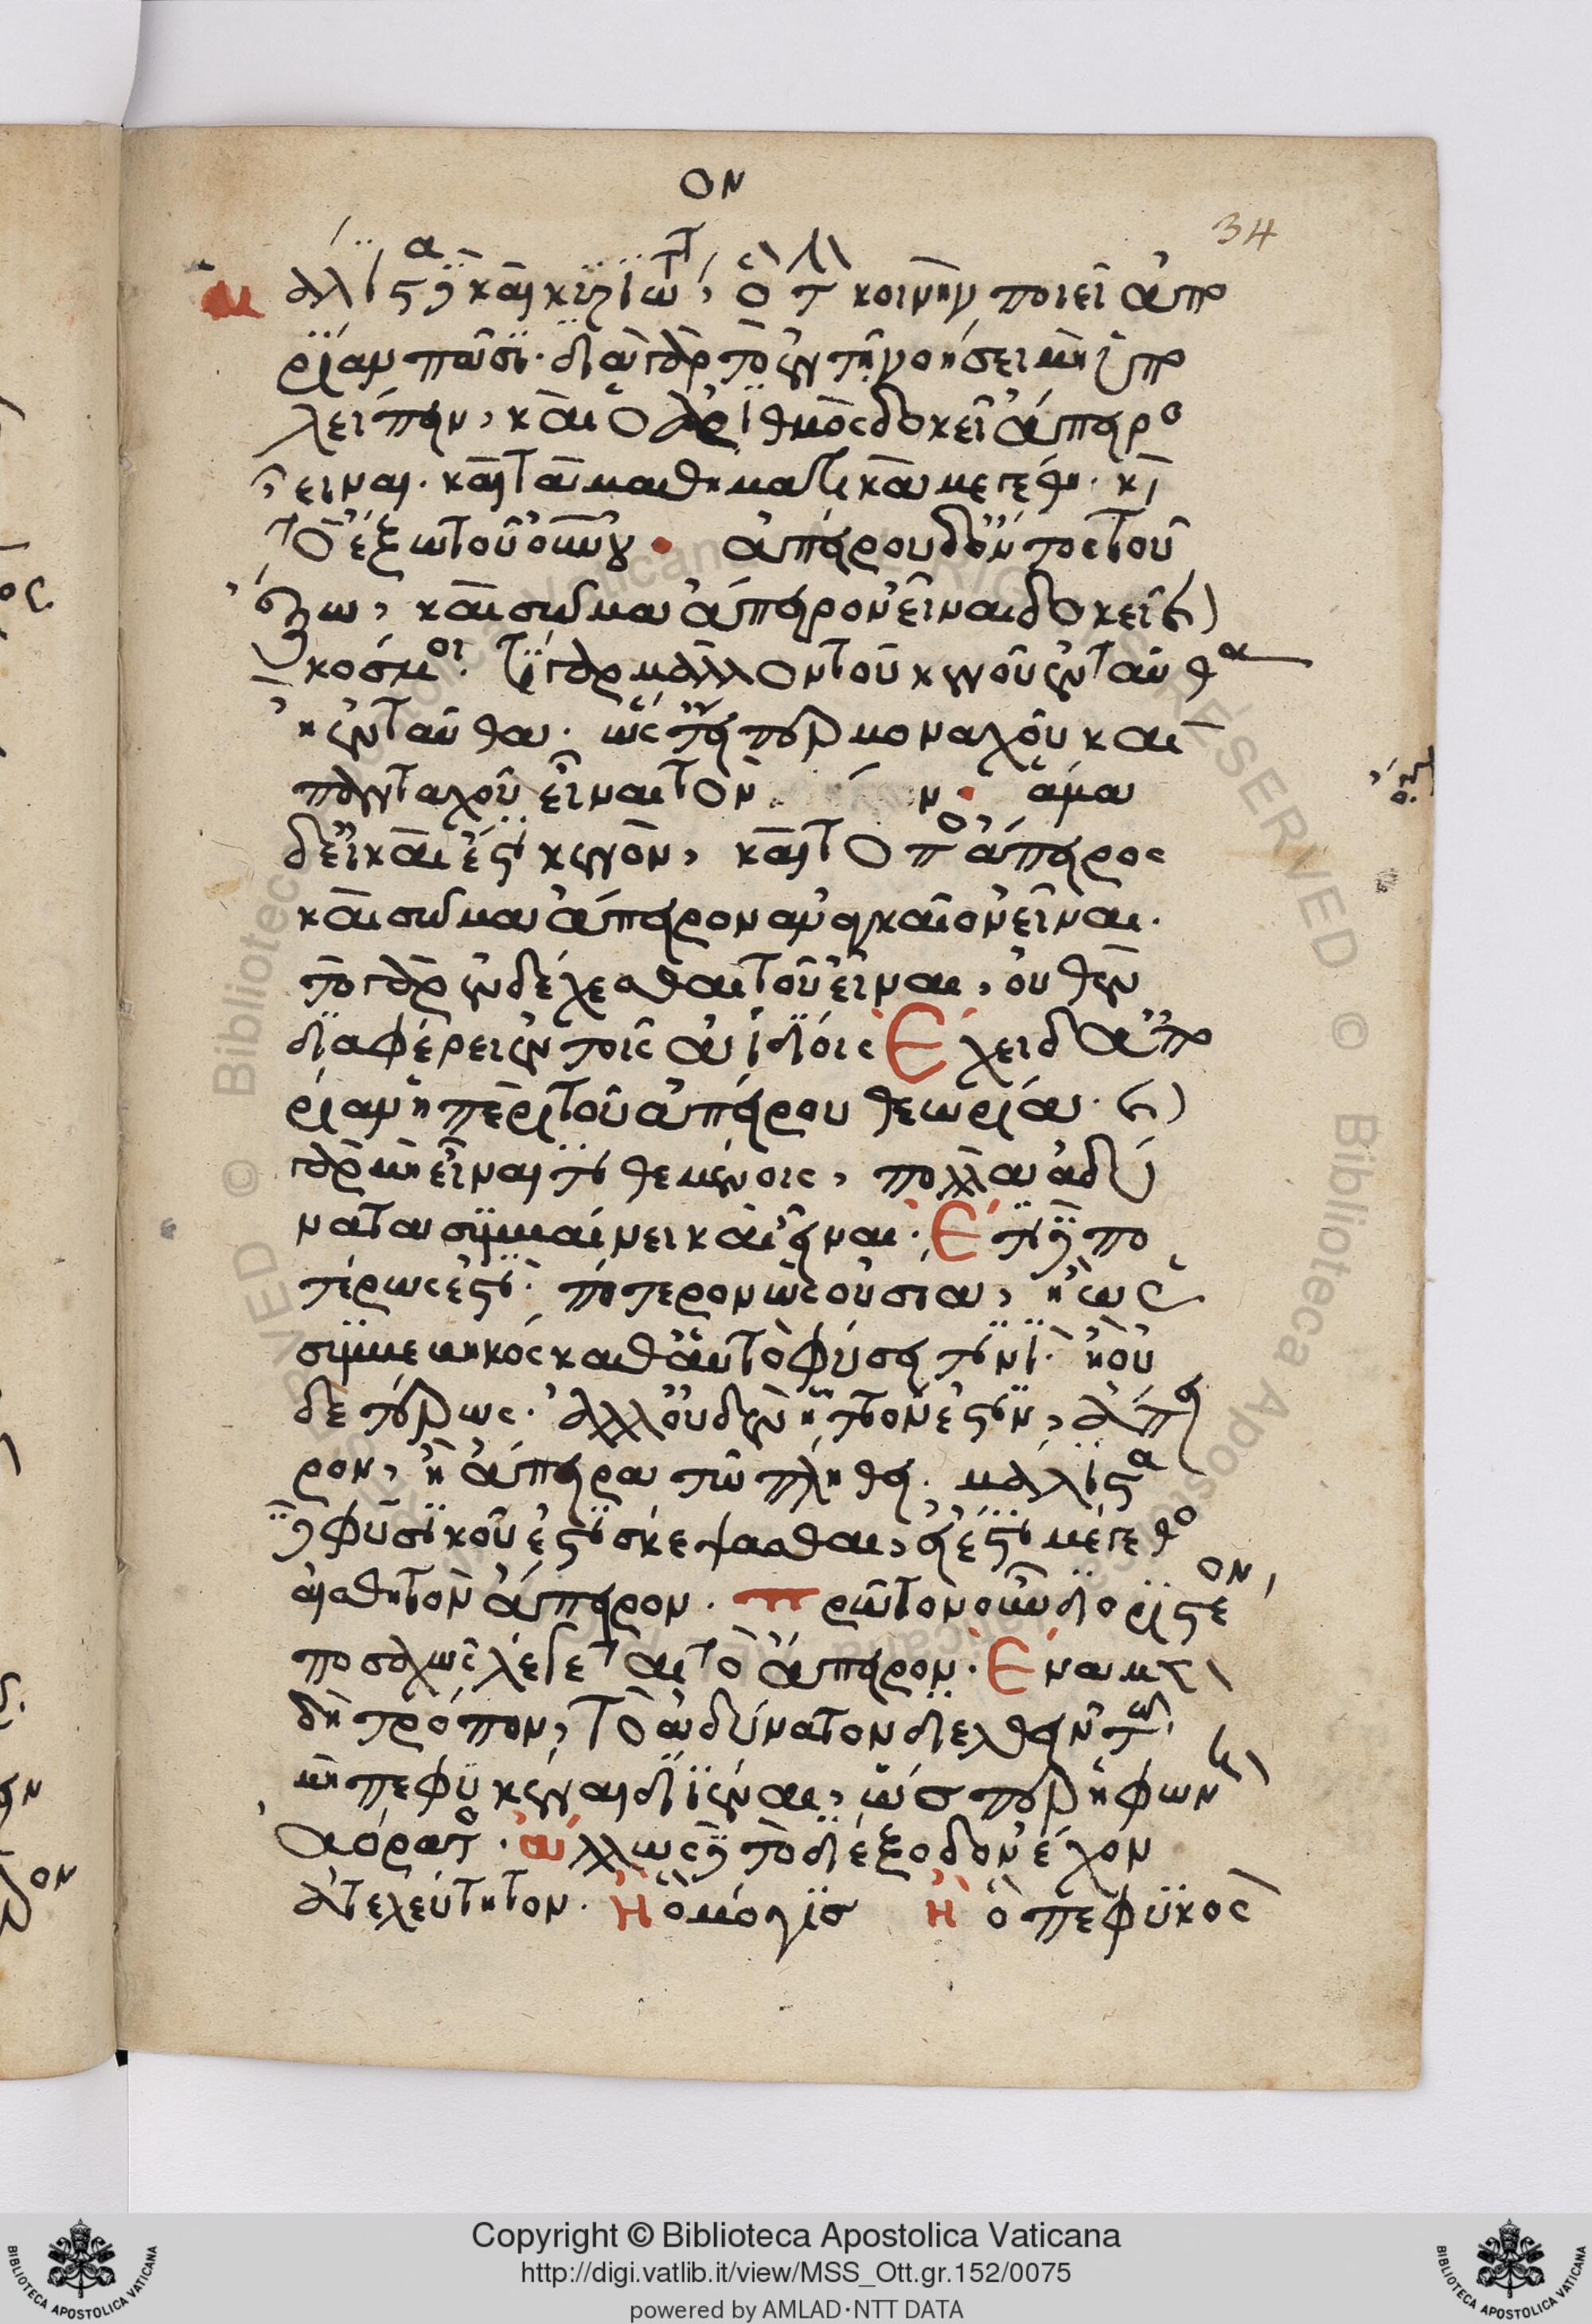 ον
34
μάλιστα δὲ καὶ κυριώτατον, ὃ τὴν κοινὴν ποιεῖ ἀπο
ρίαν πᾶσι· διὰ γὰρ τὸ ἐν τῇ νοήσει μὴ ὑπο
λείπειν, καὶ ὁ ἀριθμὸς δοκεῖ ἄπειρος
εἶναι· καὶ τὰ μαθηματικὰ μεγέθη· καὶ
τὸ ἔξω τοῦ οὐρανοῦ· ἀπείρου δ' ὄντος τοῦ
ἔξω, καὶ σῶμα ἄπειρον εἶναι δοκεῖ καὶ
κόσμοι· τί γὰρ μᾶλλον τοῦ κενοῦ ἐνταῦθα
ἢ ἐνταῦθα· ὥστ' εἴπερ μοναχοῦ καὶ
πανταχοῦ εἶναι τὸν ν· ἅμα
δ' εἰ καὶ ἔστι κενὸν, καὶ τόπος ἄπειρος
καὶ σῶμα ἄπειρον ἀναγκαῖον εἶναι·
τὸ γὰρ ἐνδέχεσθαι τοῦ εἶναι, οὐθὲν
διαφέρει ἐν τοῖς ἀϊδίοις· Ἔχει δ' ἀπο
ρίαν ἡ περὶ τοῦ ἀπείρου θεωρία· καὶ
γὰρ μὴ εἶναι τιθεμένοις, πολλὰ ἀδύ
νατα συμβαίνει καὶ εἶναι· Ἔτι δὲ πο
τέρως ἐστι· πότερον ὡς οὐσία, ἢ ὡς
συμβεβηκὸς καθ' αὑτὸ φύσει τινί· ἢ οὐ
δετέρως· ἀλλ' οὐδὲν ἧττον ἔστιν, ἄπει
ρον, ἢ ἄπειρα τῷ πλήθει· μάλιστα
δὲ φυσικοῦ ἐστι σκέψασθαι, εἰ ἔστι μέγεθος
αἰσθητὸν ἄπειρον· Πρῶτον οὖν διοριστέον,
ποσαχῶς λέγεται τὸ ἄπειρον· Ἕνα μὲν
δὴ τρόπον, τὸ ἀδύνατον διελθεῖν τῷ
μὴ πεφυκέναι διϊέναι, ὥσπερ ἡ φωνὴ
ἀόρατος· ἄλλως δὲ τὸ διέξοδον ἔχον
ἀτελεύτητον· Ἢ ὃ μόγις Ἢ ὃ πεφυκὸς
Copyright © Biblioteca Apostolica Vaticana
http://digi.vatlib.it/view/MSS_Ott.gr.152/0075
powered by AMLAD·NTT DATA